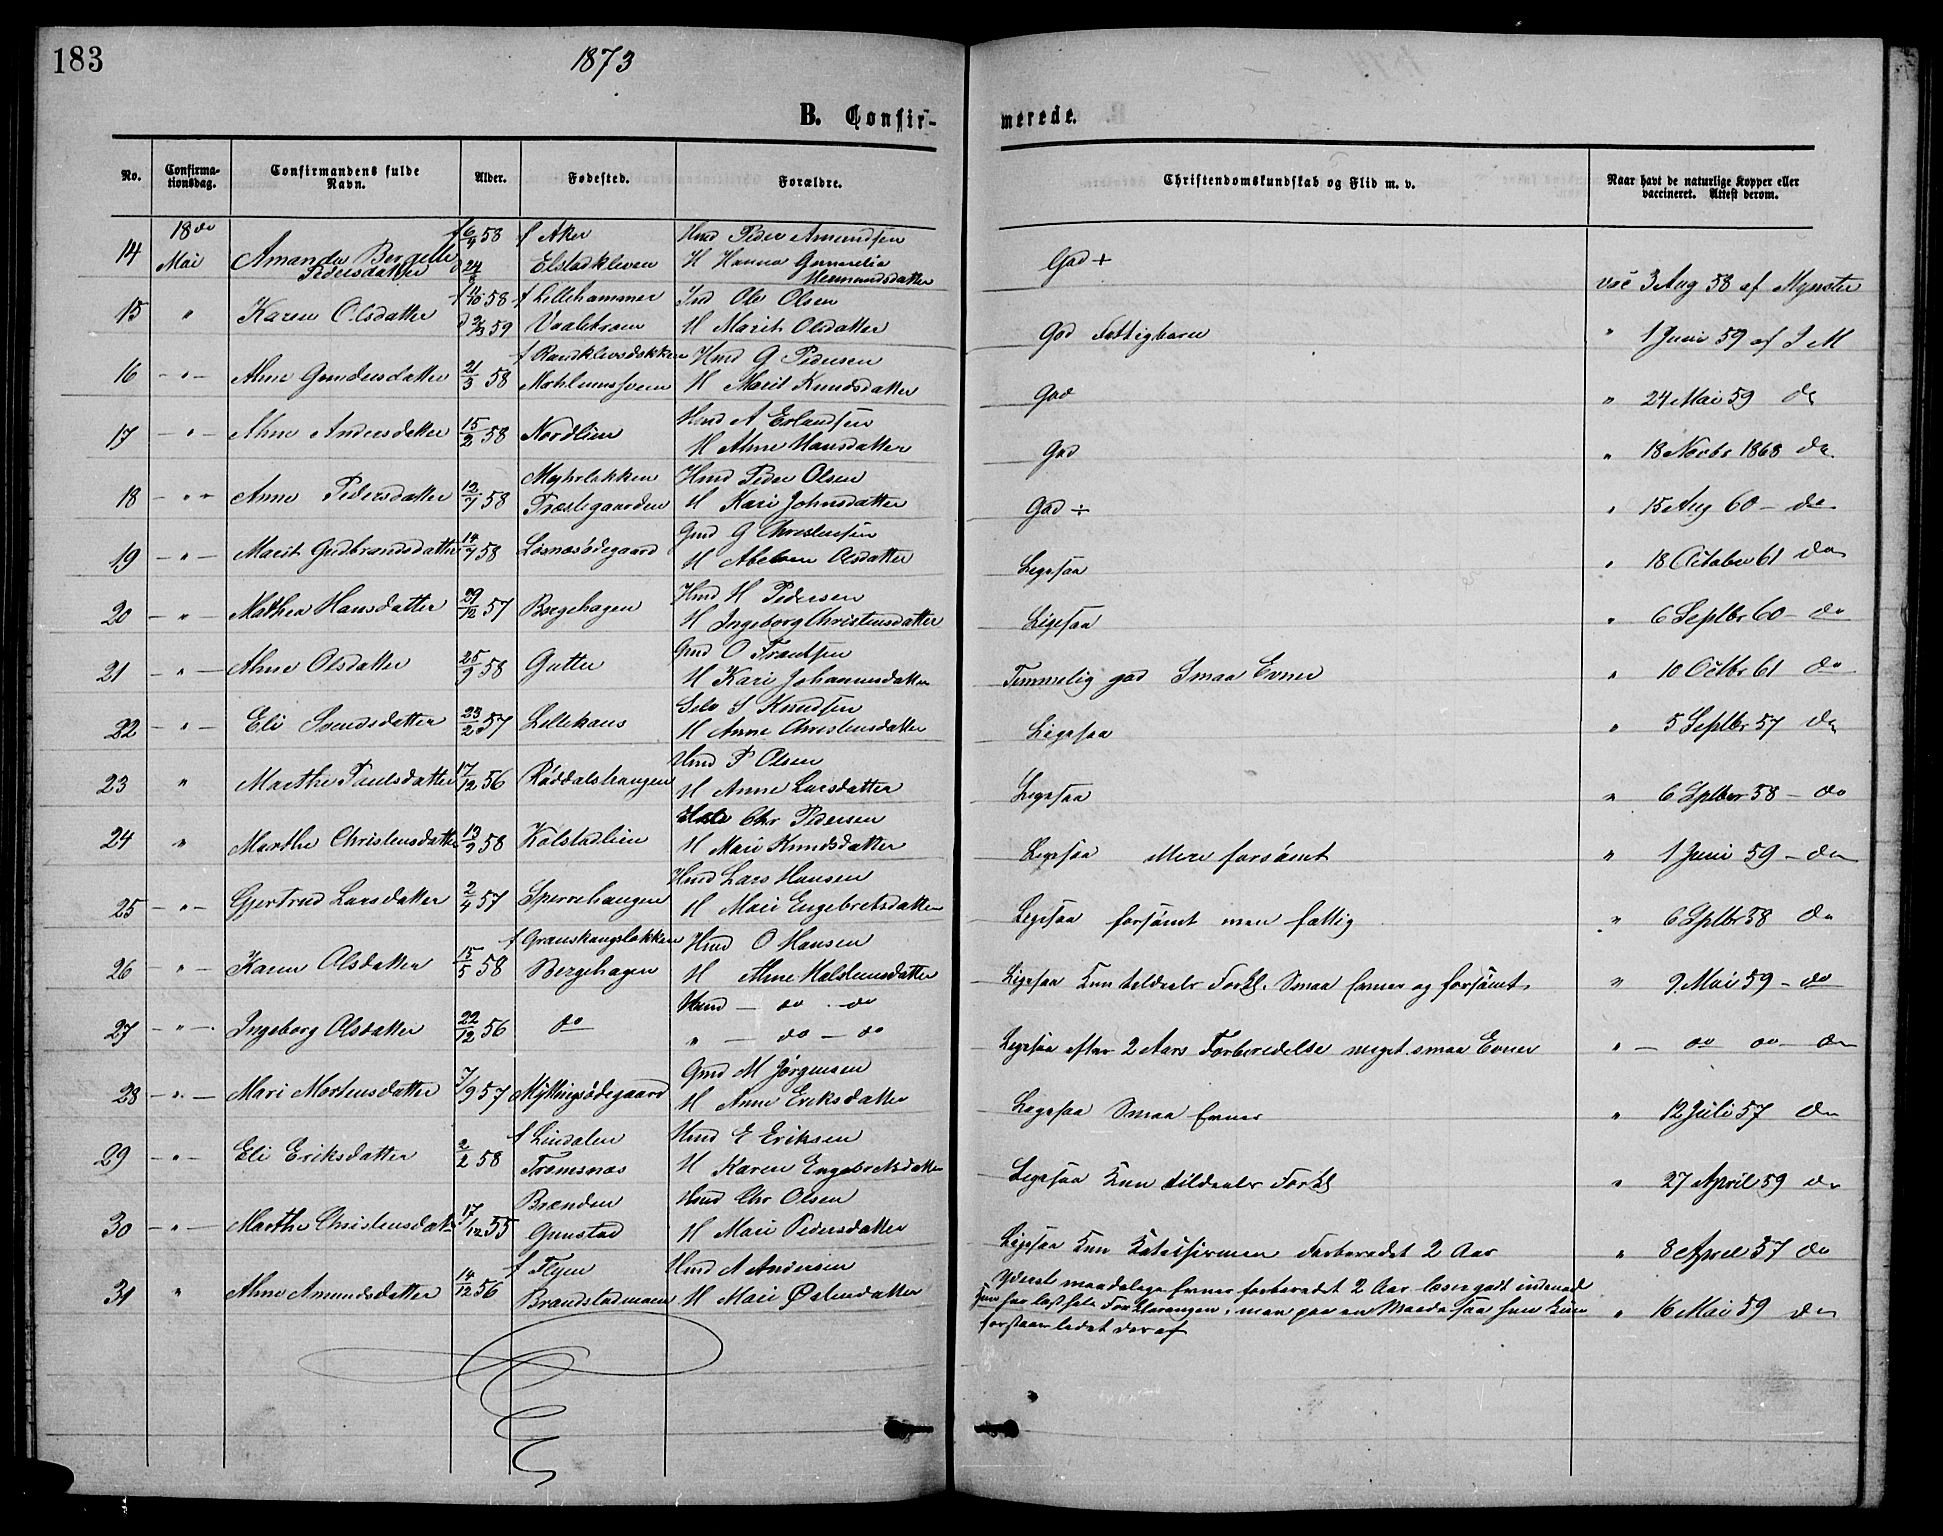 183
1873
B. Confir-
merede.
No. Confirma-tionsdag. Confirmandens fulde Navn. Alder. Fødested. Forældre. Christendomskundskab og Flid m. v. Naar havt de naturlige Kopper eller vaccineret. Attest derom.
18de f 6/4 58 f Aker Hmd Peder Amundsen
14 Mai Amanda Pedersdatter d 24 Elstadkleven H Hanna Hermundsdatter God + vac 3 Aug 58 af Mynster
f 4/10 58 f Lillehammer Ind Ole Olsen
15 " Karen Olsdatter d 59 H Marit Olsdatter God Fattigbarn " 1 Juni 59 af I M
Hmd G Pedersen
16 - " - Ahne Gundersdatter 21/3 58 H Marit Knudsdatter God " 24 Mai 59 do
Hmd A Erlandsen
17 - " - Ahne Andersdatter 15/2 58 Nordlien H Ahne Hansdatter God " 18 Novbr 1868 do
Hmd Peder Olsen
18 - " - Anne Pedersdatter 12/7 58 Træslegaarden H Kari Johnsdatter God ÷ " 15 Aug 60 - do
Gmd G Christensen
19 - " - Marit Gudbrandsdatter 14/7 58 Losnæsødegaard H Abelone Olsdatter Ligesaa " 18 October 61 do
Hmd H Pedersen
20 - " - Mathea Hansdatter 29/12 57 Bergehagen H Ingeborg Christensdatter Ligesaa " 6 Septbr 60 - do
Gmd O Frantsen
21 - " - Ahne Olsdatter 25/9 58 Gutter H Kari Johannesdatter Temmelig god Smaa Evner " 10 Octbr 61 do
Selv S Knudsen
22 - " - Eli Svendsdatter 23/2 57 H Anne Christensdatter Ligesaa " 5 Septbr 57 do
Hmd P Olsen
23 " Marthe Paulsdatter 17/12 56 H Anne Larsdatter Ligesaa " 6 Sptber 58 - do
Chr Pedersen
24 " Marthe Christensdatter 13/9 58 Kolstadlien H Mari Knudsdatter Ligesaa Mere forsømt " 1 Juni 59 - do
Hmd Lars Hansen
25 - " - Gjertrud Larsdatter 2/4 57 Sperrehaugen H Mari Engebretsdatter Ligesaa forsømt men fattig " 6 Sptbr 58 do
Hmd O Hansen
26 - " - Karen Olsdatter 15/5 58 Bergehagen H Ahne Halstensdatter Ligesaa Kun tildeels Forkl. Smaa Evner og forsømt " 9. Mai 59 - do
Hmd - do - do
27 - " - Ingeborg Olsdatter 22/12 56 do " - do - do Ligesaa efter 2 Aars Forberedelse meget smaa Evner " - do do - do
Gmd M Jørgensen
28 - " - Mari Mortensdatter 7/9 57 Myktingsødegaard H Anne Eriksdatter Ligesaa Smaa Evner " 12 Juli 57 do
f Lindalen Hmd E Eriksen
29 - " - Eli Eriksdatter 2/2 58 Tromsnæs H Karen Engebretsdatter Ligesaa Kun tildeels Forkl " 27 April 59 do
Brænden Hmd Chr Olsen
30 - " - Marthe Christensdatter 17/12 55 Gunstad H Mari Pedersdatter Ligesaa Kun Katechismen forberedet 2 Aar " 8 April 57 do
f Flyen Hmd A Andersen
31 " Ahne Amundsdatter 14/12 56 Brandstadmoen H Mari Østensdatter Yderst maadelige Evner forberedet 2 Aar læser godt indenad
Hun har læst hele Forklaringen, men paa en Maade saa hun Kun " 16 Mai 59 do
forstaar lidet deraf